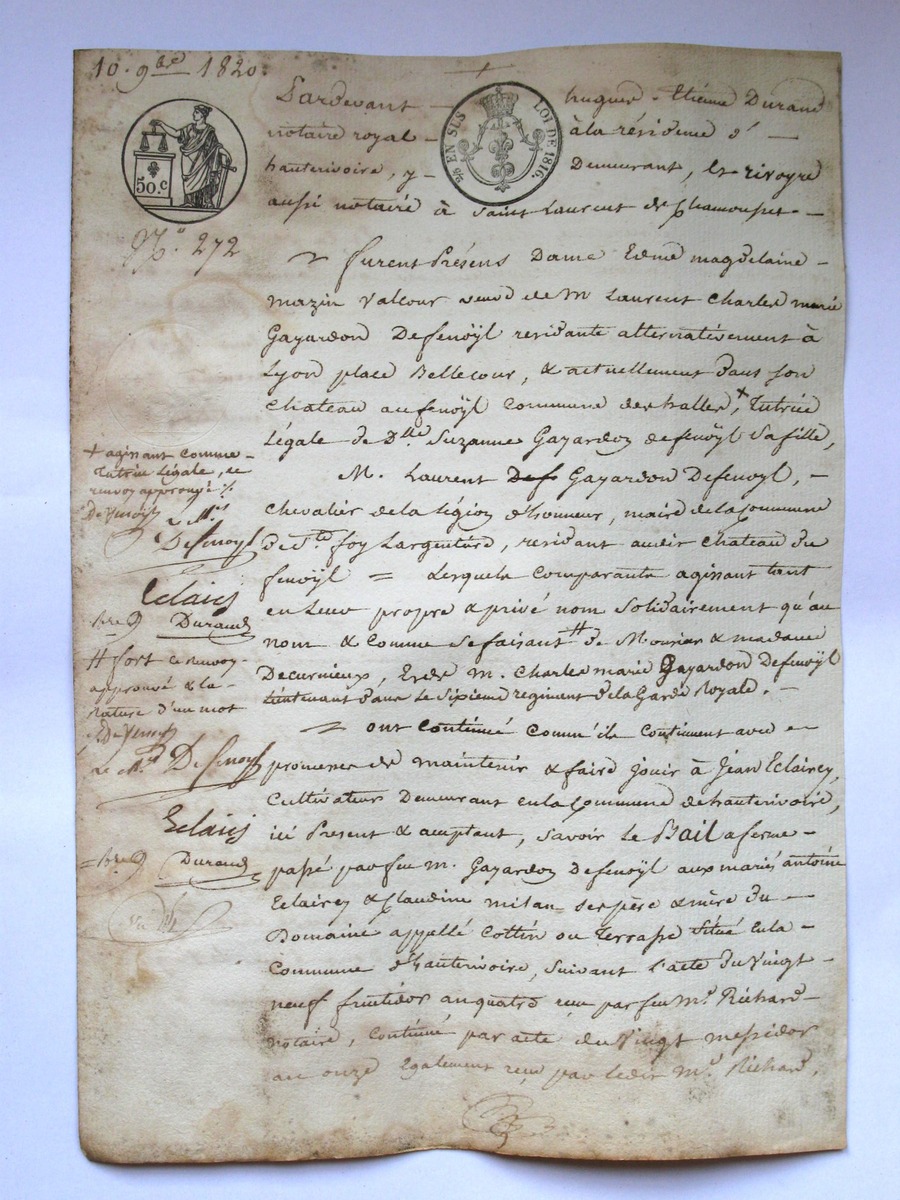 10. 9bre 1820.
50.c
25 EN SUS LOI DE 1816.
N.o 272
Pardevant hugues - Etienne Durand
notaire royal - à la résidence d' -
hauterivoire, y - Demeurant, & rivoyre
aussi notaire à Saint Laurent de Chamousset. -
furent Présens Dame Edmé magdelaine -
mazin Valcour veuve de M Laurent Charles marie
Gayardon Defenoÿl residante alternativement à
Lyon place Bellecour, & actuellement dans son
chateau au fenoÿl commune des halles, + Tutrice
Légale de Dlle Suzanne Gayardon defenoÿl Sa fille,
M. Laurent Def Gayardon Defenoyl, -
Chevalier de la Légion d'honneur, maire de la Commune
de Ste foy Largentière, residant audit Chateau du
fenoÿl = Lesquels comparants agissant tant
en Leur propre & privé nom Solidairement qu'au
nom & comme se faisant # de Monsieur & madame
Decurnieux, & de M. Charles marie Gayardon Defenoÿl
Lieutenant dans le Sixieme regiment de la Garde Royale. -
ont continué comm'ils continuent avec
promesse de maintenir & faire jouir à Jean Eclairey,
Cultivateur Demeurant en la Commune de hauterivoire,
ici Present & acceptant, Savoir Le Bail a ferme -
passé par feu M. Gayardon Defenoÿl aux mariés antoine
Eclairey & Claudine milan ses père & mère du -
Domaine appellé Cottin ou Terrasse Situé en la -
Commune d'hauterivoire, Suivant l'acte du Vingt -
neuf fructidor an quatre reçu par feu Me Richard -
notaire, continué par acte du Vingt messidor
an onze Également reçu par ledit Me Richard,
+ agissant comme -
tutrice Légale, ce
renvoy approuvé ·/.
De Venoÿl
Defenoyl
Eclairey
Durand
# fort ce renvoy
approuvé & la -
rature d'un mot
Defenoyl
Eclairey
Durand